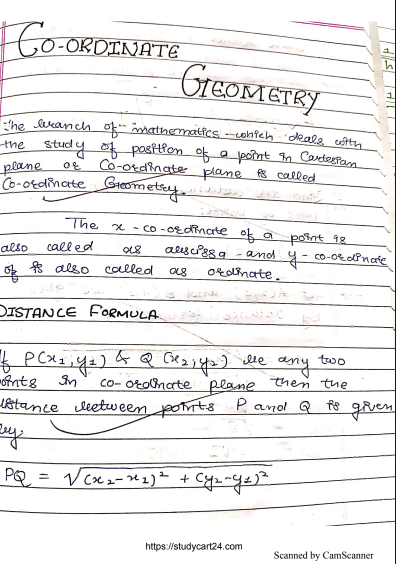 CO-ORDINATE
GEOMETRY
The branch of mathematics which deals with
the study of position of a point in Cartesian
plane or Co-ordinate plane is called
Co-ordinate Geometry.
The x-co-ordinate of a point is
also called as abscissa and y-co-ordinate
of is also called as ordinate.
DISTANCE FORMULA
If P(x₁,y₁) & Q(x₂,y₂) be any two
points in co-ordinate plane then the
distance between points P and Q is given
by,
PQ = √(x₂-x₁)² + (y₂-y₁)²
https://studycart24.com
Scanned by CamScanner